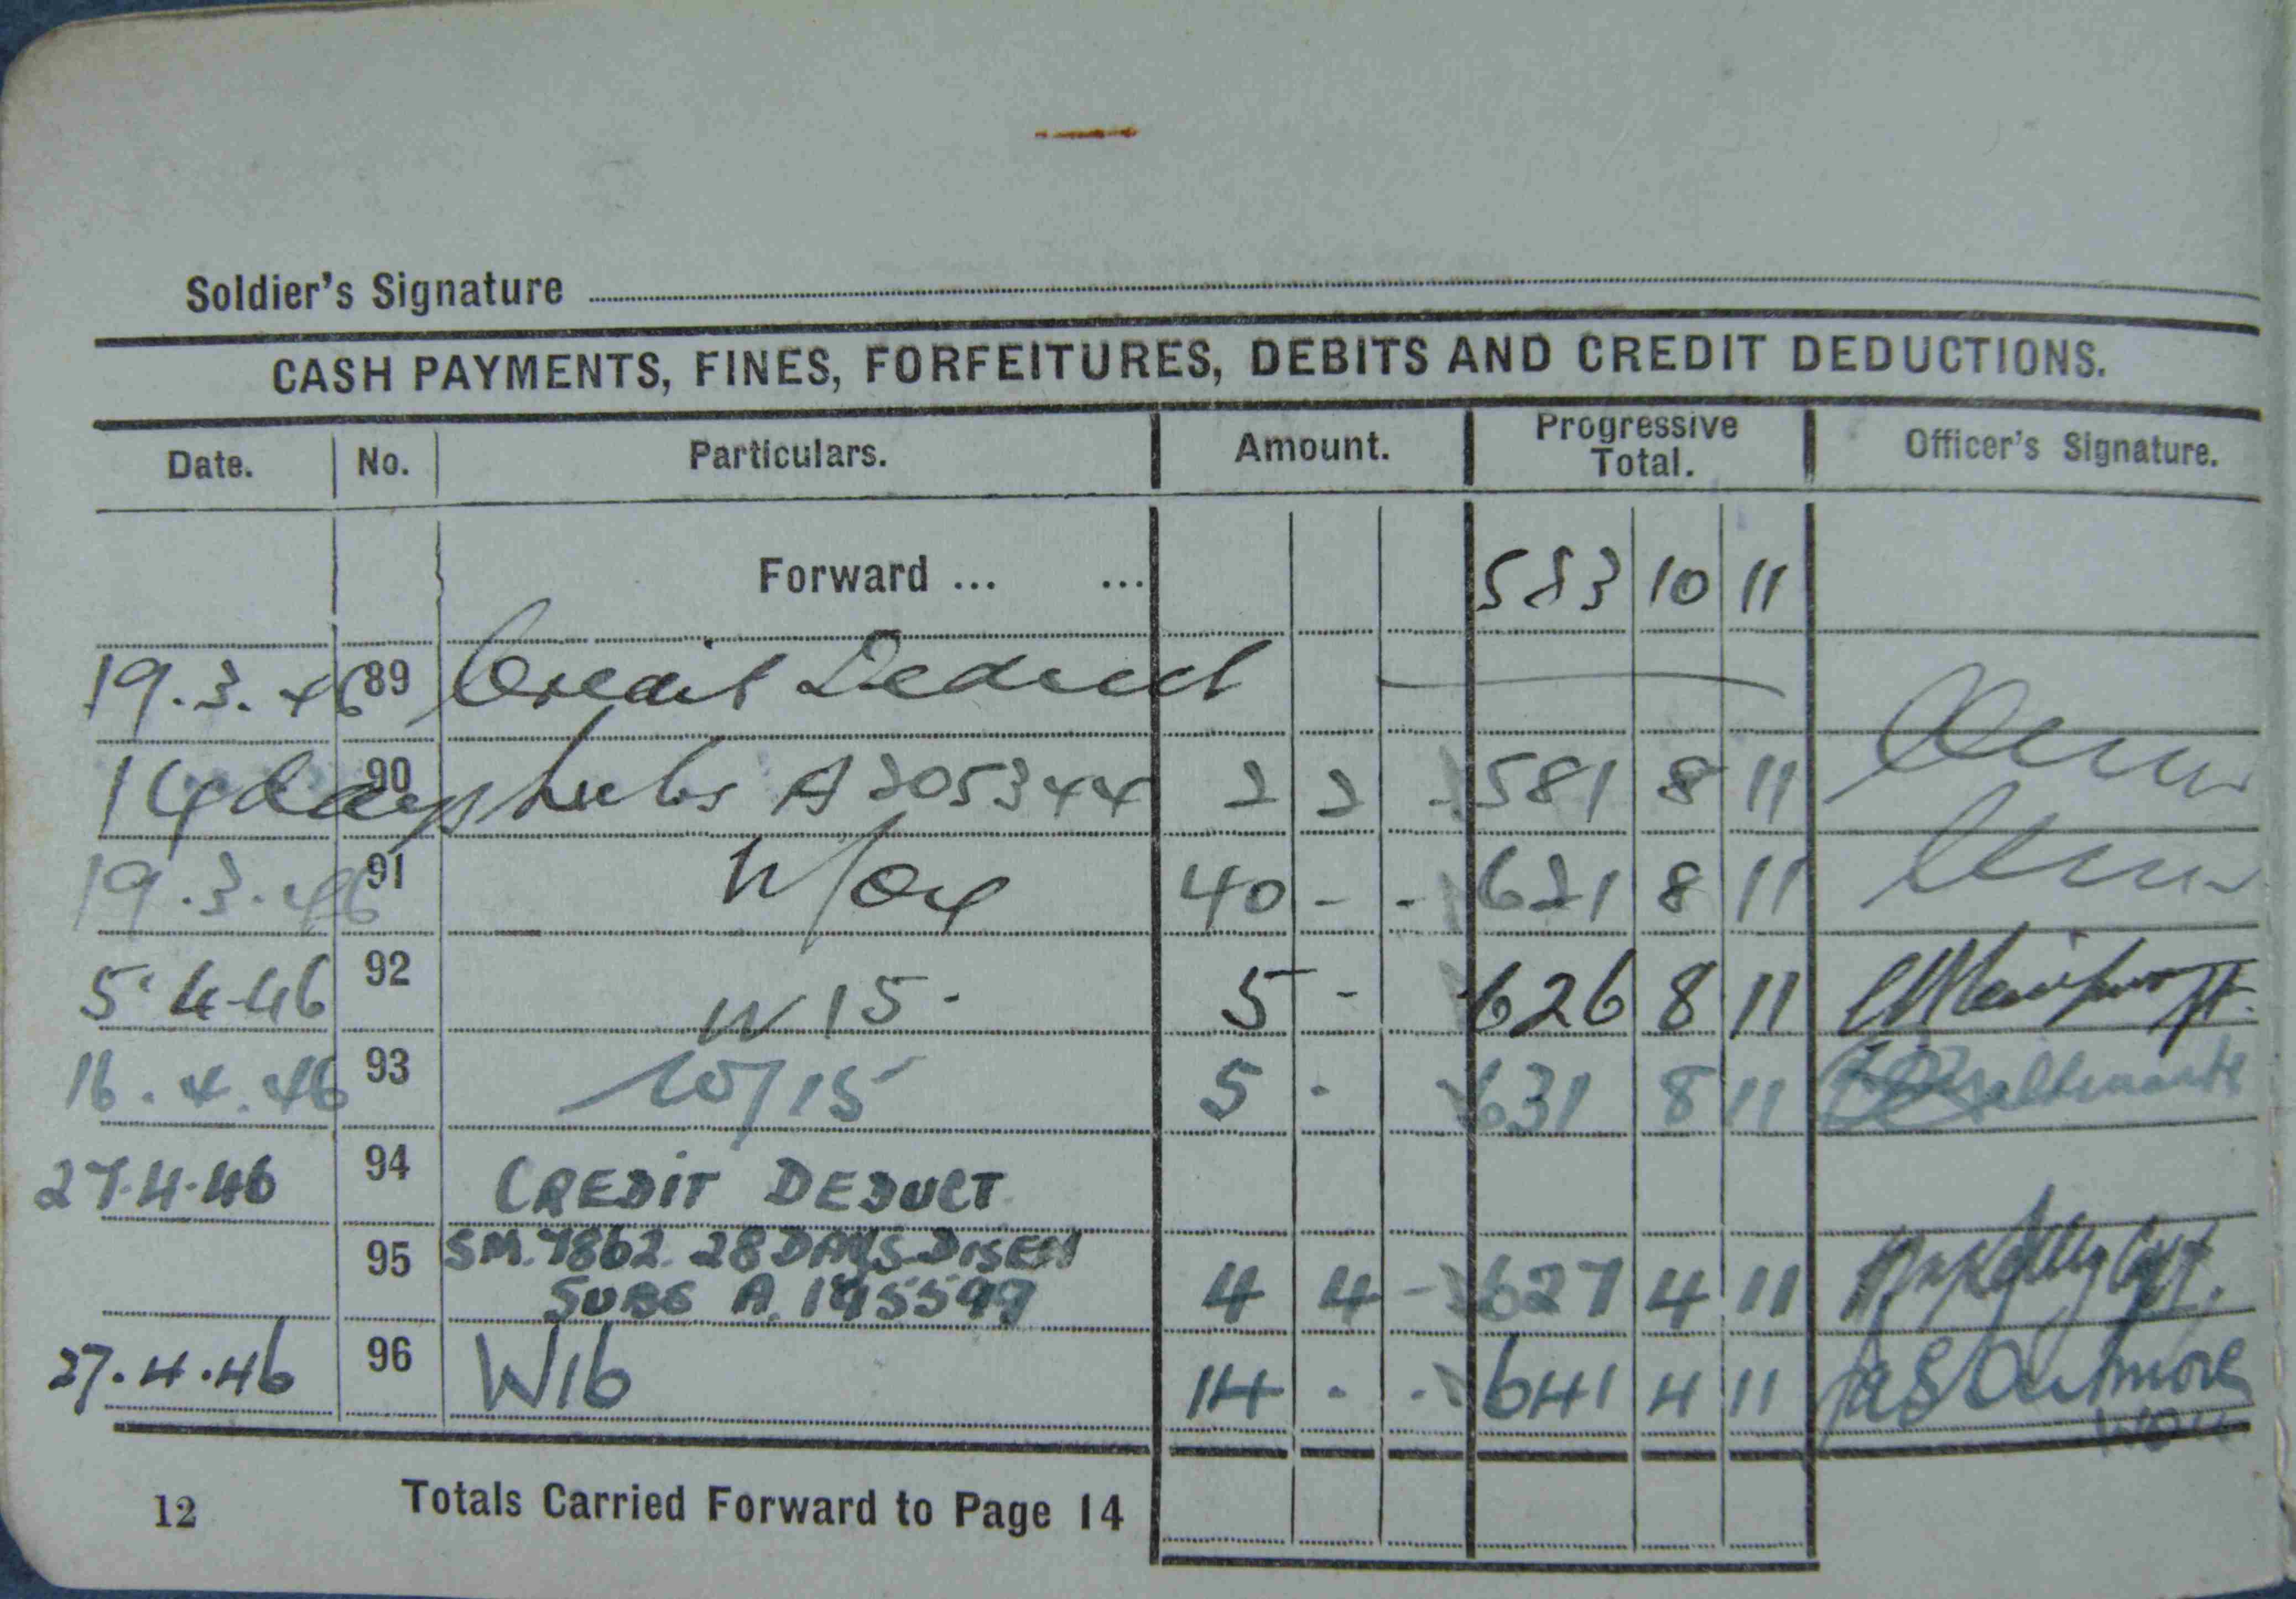 Soldier's Signature
CASH PAYMENTS, FINES, FORFEITURES, DEBITS AND CREDIT DEDUCTIONS.
Date. No. Particulars. Amount. Progressive Total. Officer's Signature.
Forward ... ... 583 10 11
19.3.46 89 Credit Deduct
14 days 90 Subs A 205344 2 2 - 581 8 11
19.3.46 91 40 - - 621 8 11
5.4.46 92 W 15 - 5 - 626 8 11
16.4.46 93 W/15 5 - 631 8 11
27.4.46 94 CREDIT DEDUCT
95 SM.7862. 28 DAYS DISEM
SUBS A. 4 4 - 627 4 11
27.4.46 96 W16 14 - - 641 4 11
12 Totals Carried Forward to Page 14